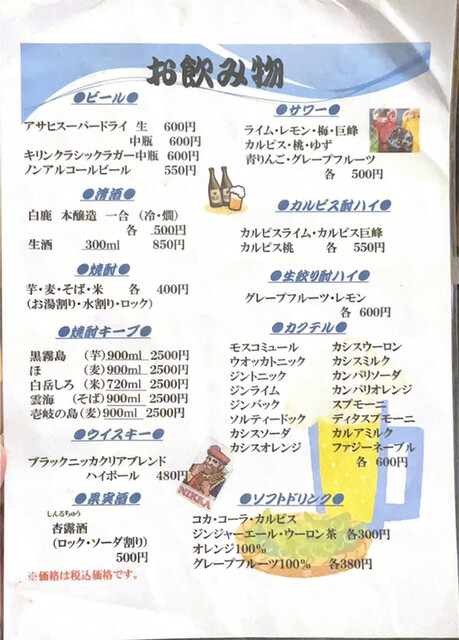 お飲み物
●ビール●
アサヒスーパードライ 生 600円
中瓶 600円
キリンクラシックラガー中瓶 600円
ノンアルコールビール 550円
●清酒●
白鹿 本醸造 一合 (冷・燗)
各 500円
生酒 300ml 850円
●焼酎●
芋・麦・そば・米 各 400円
(お湯割り・水割り・ロック)
●焼酎キープ●
黒霧島 (芋) 900ml 2500円
ほ (麦) 900ml 2500円
白岳しろ (米) 720ml 2500円
雲海 (そば) 900ml 2500円
壱岐の島 (麦) 900ml 2500円
●ウイスキー●
ブラックニッカクリアブレンド
ハイボール 480円
NIKKA
●果実酒●
しんるちゅう
杏露酒
(ロック・ソーダ割り)
500円
※価格は税込価格です。
●サワー●
ライム・レモン・梅・巨峰
カルピス・桃・ゆず
青りんご・グレープフルーツ
各 500円
●カルピス酎ハイ●
カルピスライム・カルピス巨峰
カルピス桃 各 550円
●生絞り酎ハイ●
グレープフルーツ・レモン
各 600円
●カクテル●
モスコミュール カシスウーロン
ウオッカトニック カシスミルク
ジントニック カンパリソーダ
ジンライム カンパリオレンジ
ジンバック スプモーニ
ソルティードック ディタスプモーニ
カシスソーダ カルアミルク
カシスオレンジ ファジーネーブル
各 600円
●ソフトドリンク●
コカ・コーラ・カルピス
ジンジャーエール・ウーロン茶 各300円
オレンジ100%
グレープフルーツ100% 各380円